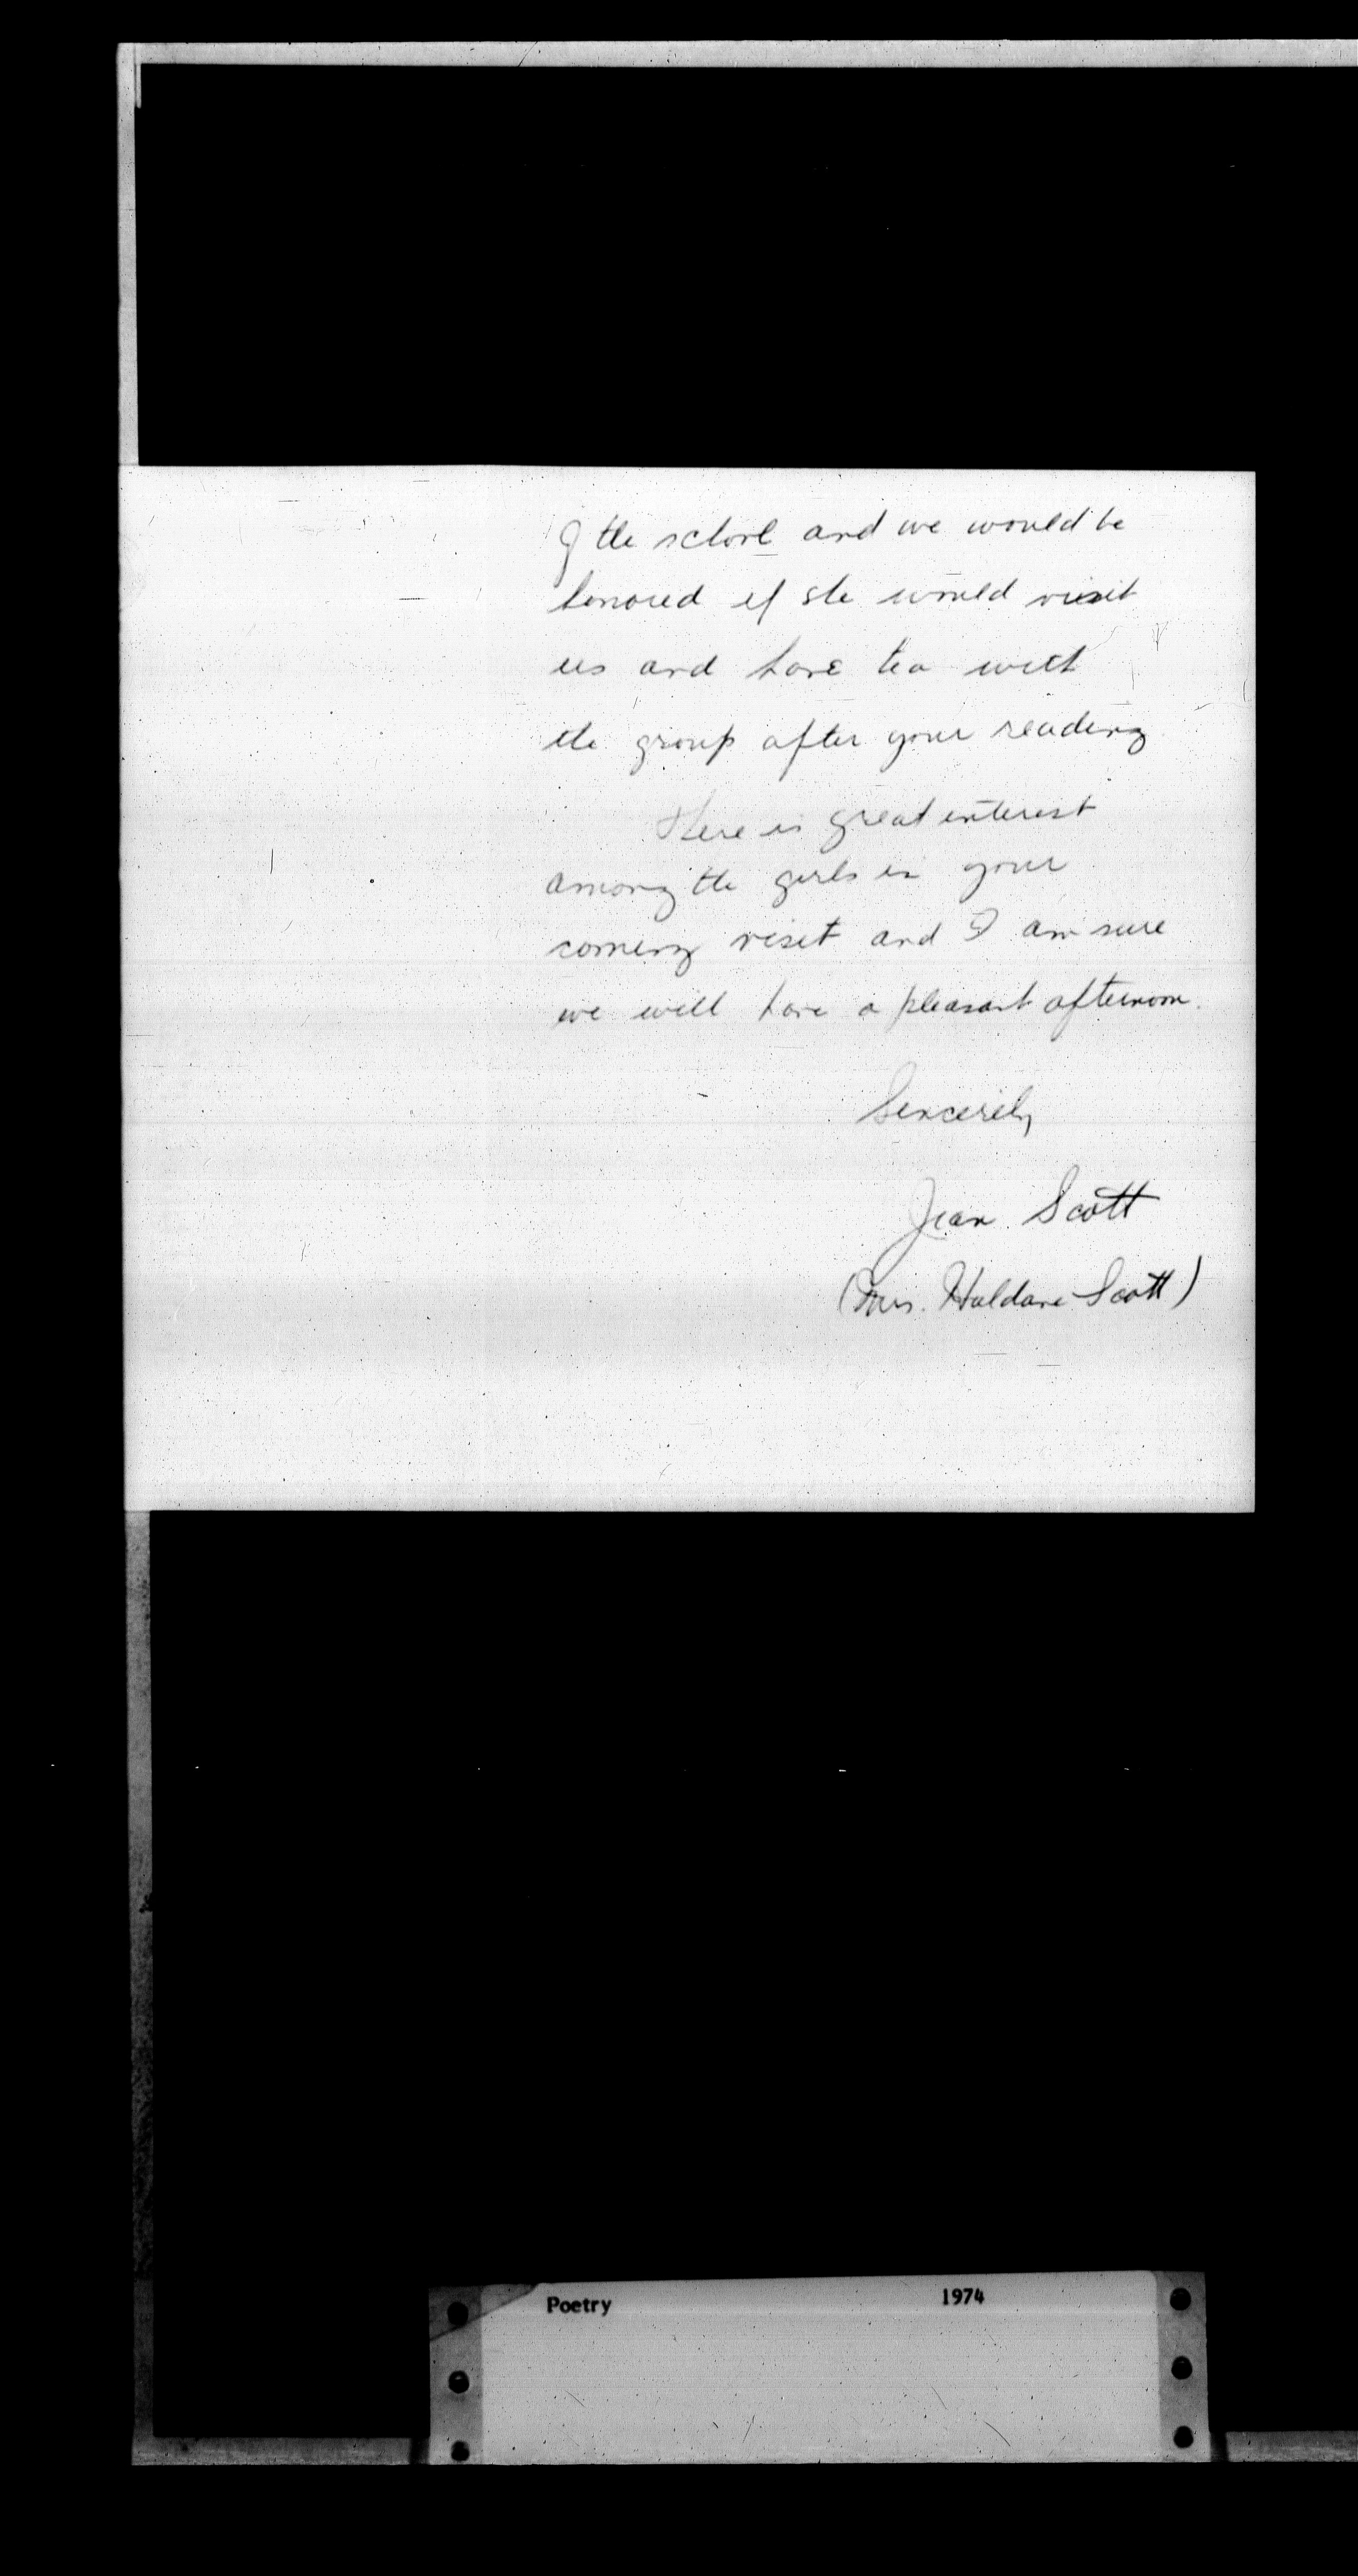 of the school and we would be
honored if she would visit
us and have tea with
the group after your reading
There is great interest
among the girls in your
coming visit and I am sure
we will have a pleasant afternoon.
Sincerely
Jean Scott
(Mrs. Haldane Scott)
Poetry 1974